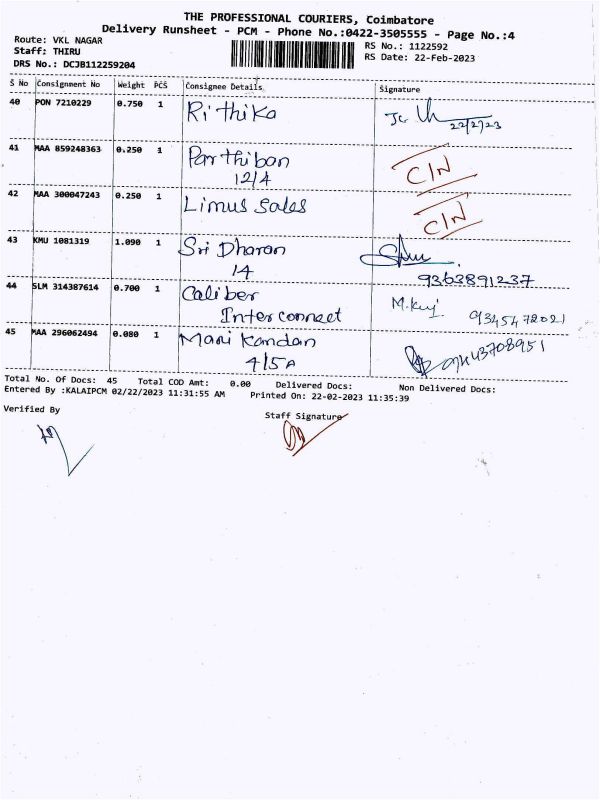 THE PROFESSIONAL COURIERS, Coimbatore
Delivery Runsheet - PCM - Phone No.:0422-3505555 - Page No.:4
Route: VKL NAGAR
Staff: THIRU
DRS No.: DCJB112259204
RS No.: 1122592
RS Date: 22-Feb-2023
S No Consignment No Weight PCS Consignee Details Signature
40 PON 7210229 0.750 1 Rithika 22/2/23
41 MAA 859248363 0.250 1 Parthiban C/N
12/4
42 MAA 300047243 0.250 1 Limus Sales C/N
43 KMU 1081319 1.090 1 Sri Dharan
14 9363891237
44 SLM 314387614 0.700 1 Caliber M.Kuj 9345472021
Interconnect
45 MAA 296062494 0.080 1 Mani Kandan
4/5A
Total No. Of Docs: 45 Total COD Amt: 0.00 Delivered Docs: Non Delivered Docs:
Entered By :KALAIPCM 02/22/2023 11:31:55 AM Printed On: 22-02-2023 11:35:39
Verified By
Staff Signature